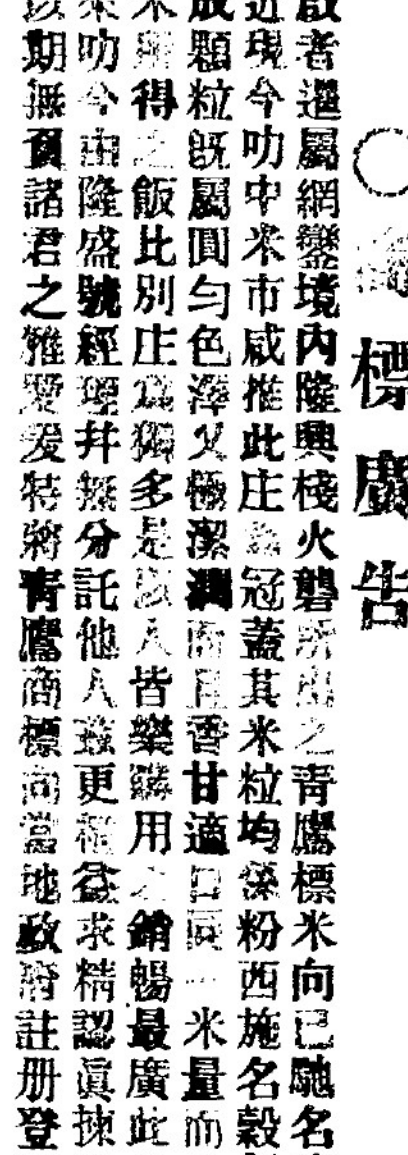 〇商標廣告
啟者暹屬網鑾境內隆興棧火礱所出之青鷹標米向已馳名
近現今叻中米市咸推此庄為冠蓋其米粒均係粉西施名穀
成顆粒既屬圓勻色澤又極潔潤而且香甘適口同一米量而
米所得之飯比別庄為獨多是以人皆樂購用之銷暢最廣此
米叻今由隆盛號經理并無分託他人茲更精益求精認真揀
以期無負諸君之雅愛爰特將青鷹商標向當地政府註册登